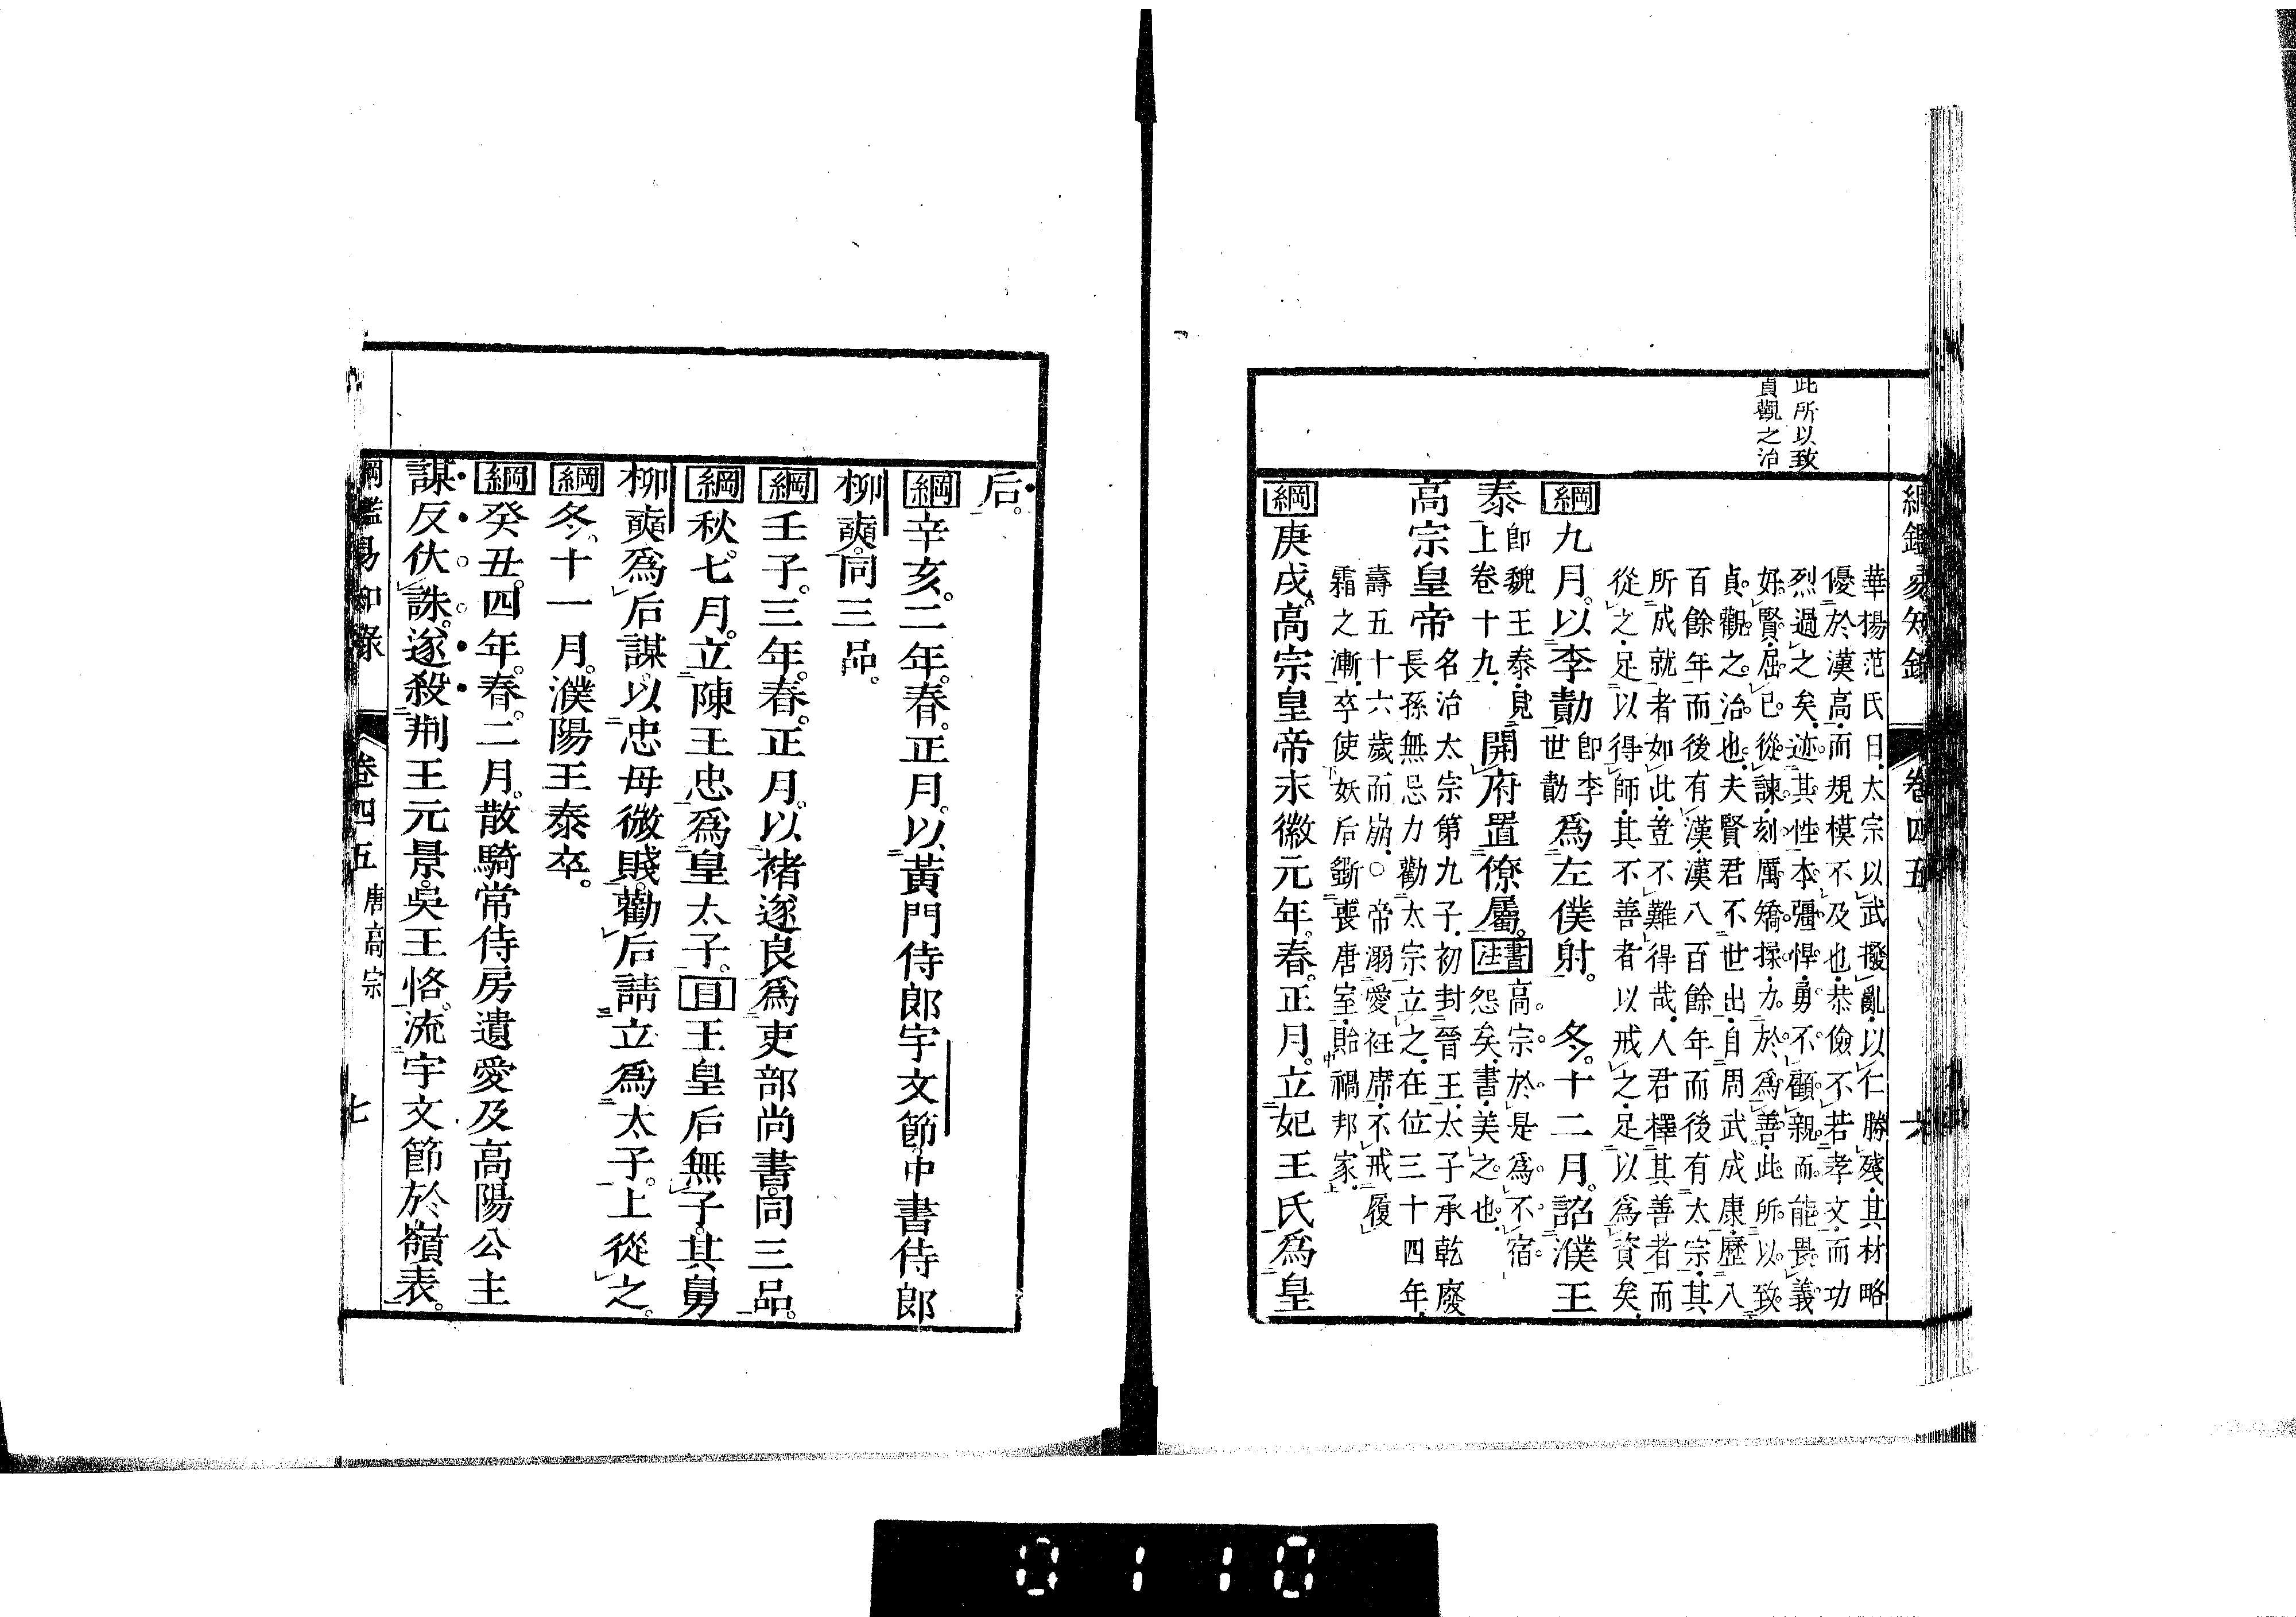 此所以致
貞觀之治
綱鑑易知錄 卷四五 六
華揚范氏曰太宗以武撥亂以仁勝殘其材略
優於漢高而規模不及也恭儉不若孝文而功
烈過之矣迹其性本彊悍勇不顧親而能畏義
好賢屈已從諫刻厲矯揉力於為善此所以致
貞觀之治也夫賢君不世出自周武成康歷八
百餘年而後有漢漢八百餘年而後有太宗其
所成就者如此豈不難得哉人君擇其善者而
從之足以得師其不善者以戒之足以為資矣
綱九月。以李勣即李世勣為左僕射。 冬。十二月。詔濮王
泰即魏王泰見上卷十九開府置僚屬。書法高宗於是為不宿怨矣書美之也
高宗皇帝名治太宗第九子初封晉王太子承乾廢長孫無忌力勸太宗立之在位三十四年
壽五十六歲而崩○帝溺愛衽席不戒履
霜之漸卒使妖后斵喪唐室貽禍邦家
綱庚戌。高宗皇帝永徽元年。春。正月。立妃王氏為皇
后。
綱辛亥。二年。春。正月。以黃門侍郎宇文節。中書侍郎
柳奭。同三品。
綱壬子。三年。春。正月。以褚遂良為吏部尚書。同三品。
綱秋。七月。立陳王忠為皇太子。目王皇后無子。其舅
柳奭為后謀。以忠母微賤。勸后請立為太子。上從之。
綱冬。十一月。濮陽王泰卒。
綱癸丑。四年。春。二月。散騎常侍房遺愛及高陽公主
謀反伏誅。遂殺荆王元景。吳王恪。流宇文節於嶺表。
綱鑑易知錄 卷四五 唐高宗 七
0110